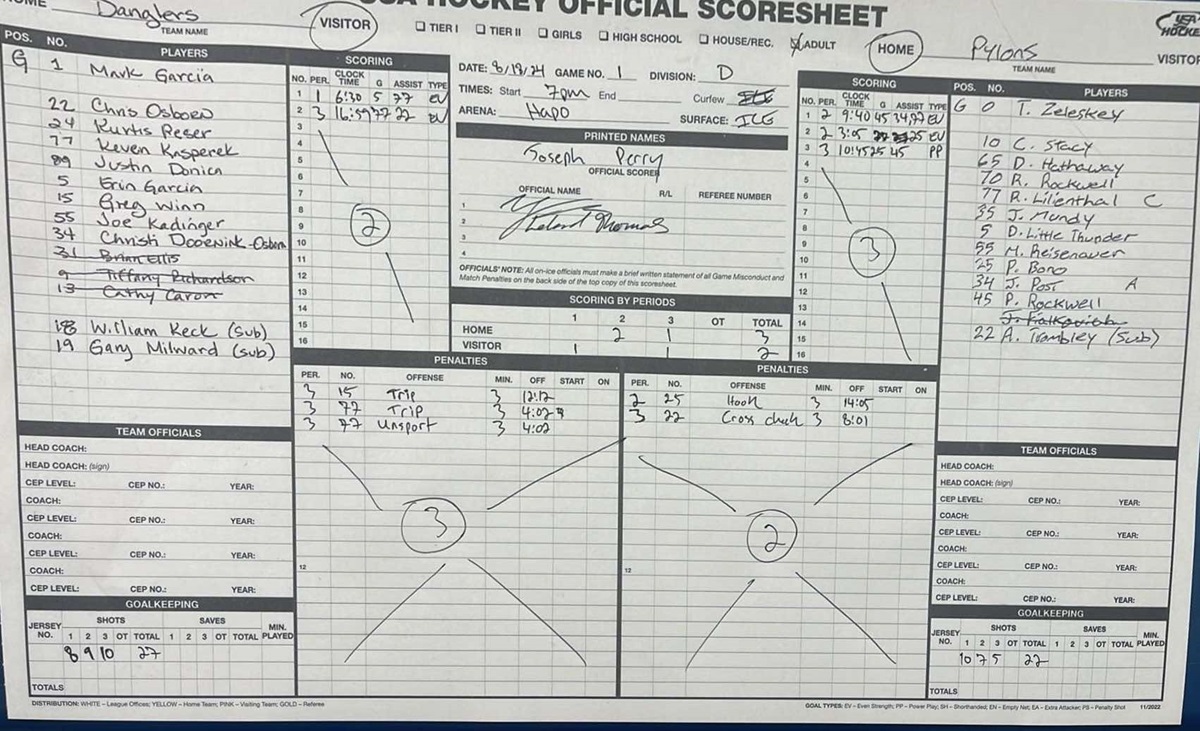 HOCKEY OFFICIAL SCORESHEET
HOME Danglers VISITOR
TEAM NAME
☐ TIER I ☐ TIER II ☐ GIRLS ☐ HIGH SCHOOL ☐ HOUSE/REC. ☒ ADULT
HOME Pylons VISITOR
TEAM NAME
USA HOCKEY
POS. NO. PLAYERS
G 1 Mark Garcia
22 Chris Osborn
24 Kurtis Reser
77 Keven Kasperek
89 Justin Donica
5 Erin Garcia
15 Greg Winn
55 Joe Kadinger
34 Christi Doornink-Osborn
31 Brian Ellis
9 Tiffany Richardson
13 Cathy Caron
18 William Keck (sub)
19 Gary Milward (sub)
SCORING
NO. PER. CLOCK TIME G ASSIST TYPE
1 1 6:30 5 77 EV
2 3 16:59 77 22 EV
3
4
5
6
7
8
9
10
11
12
13
14
15
16
2
DATE: 8/18/24 GAME NO. 1 DIVISION: D
TIMES: Start 7pm End Curfew
ARENA: Hapo SURFACE: ICE
PRINTED NAMES
Joseph Perry
OFFICIAL SCORER
OFFICIAL NAME R/L REFEREE NUMBER
1
2 Thomas
3
4
OFFICIALS' NOTE: All on-ice officials must make a brief written statement of all Game Misconduct and
Match Penalties on the back side of the top copy of this scoresheet.
SCORING BY PERIODS
1 2 3 OT TOTAL
HOME 2 1 3
VISITOR 1 1 2
SCORING
NO. PER. CLOCK TIME G ASSIST TYPE
1 2 9:40 45 34,77 EV
2 2 3:05 25 EV
3 3 10:45 25 45 PP
4
5
6
7
8
9
10
11
12
13
14
15
16
3
POS. NO. PLAYERS
G 0 T. Zeleskey
10 C. Stacy
65 D. Hathaway
70 R. Rockwell
77 R. Lilienthal C
35 J. Mundy
5 D. Little Thunder
55 M. Reisenauer
25 P. Bono
34 J. Post A
45 P. Rockwell
22 A. Trambley (Sub)
PENALTIES
PER. NO. OFFENSE MIN. OFF START ON
3 15 Trip 3 12:12
3 77 Trip 3 4:02
3 77 Unsport 3 4:02
3
12
PENALTIES
PER. NO. OFFENSE MIN. OFF START ON
2 25 Hook 3 14:05
3 22 Cross check 3 8:01
2
12
TEAM OFFICIALS
HEAD COACH:
HEAD COACH: (sign)
CEP LEVEL: CEP NO.: YEAR:
COACH:
CEP LEVEL: CEP NO.: YEAR:
COACH:
CEP LEVEL: CEP NO.: YEAR:
COACH:
CEP LEVEL: CEP NO.: YEAR:
GOALKEEPING
JERSEY NO. SHOTS SAVES MIN. PLAYED
1 2 3 OT TOTAL 1 2 3 OT TOTAL
8 9 10 27
TOTALS
TEAM OFFICIALS
HEAD COACH:
HEAD COACH: (sign)
CEP LEVEL: CEP NO.: YEAR:
COACH:
CEP LEVEL: CEP NO.: YEAR:
COACH:
CEP LEVEL: CEP NO.: YEAR:
COACH:
CEP LEVEL: CEP NO.: YEAR:
GOALKEEPING
JERSEY NO. SHOTS SAVES MIN. PLAYED
1 2 3 OT TOTAL 1 2 3 OT TOTAL
10 7 5 22
TOTALS
DISTRIBUTION: WHITE – League Offices; YELLOW – Home Team; PINK – Visiting Team; GOLD – Referee
GOAL TYPES: EV – Even Strength; PP – Power Play; SH – Shorthanded; EN – Empty Net; EA – Extra Attacker; PS – Penalty Shot 11/2022